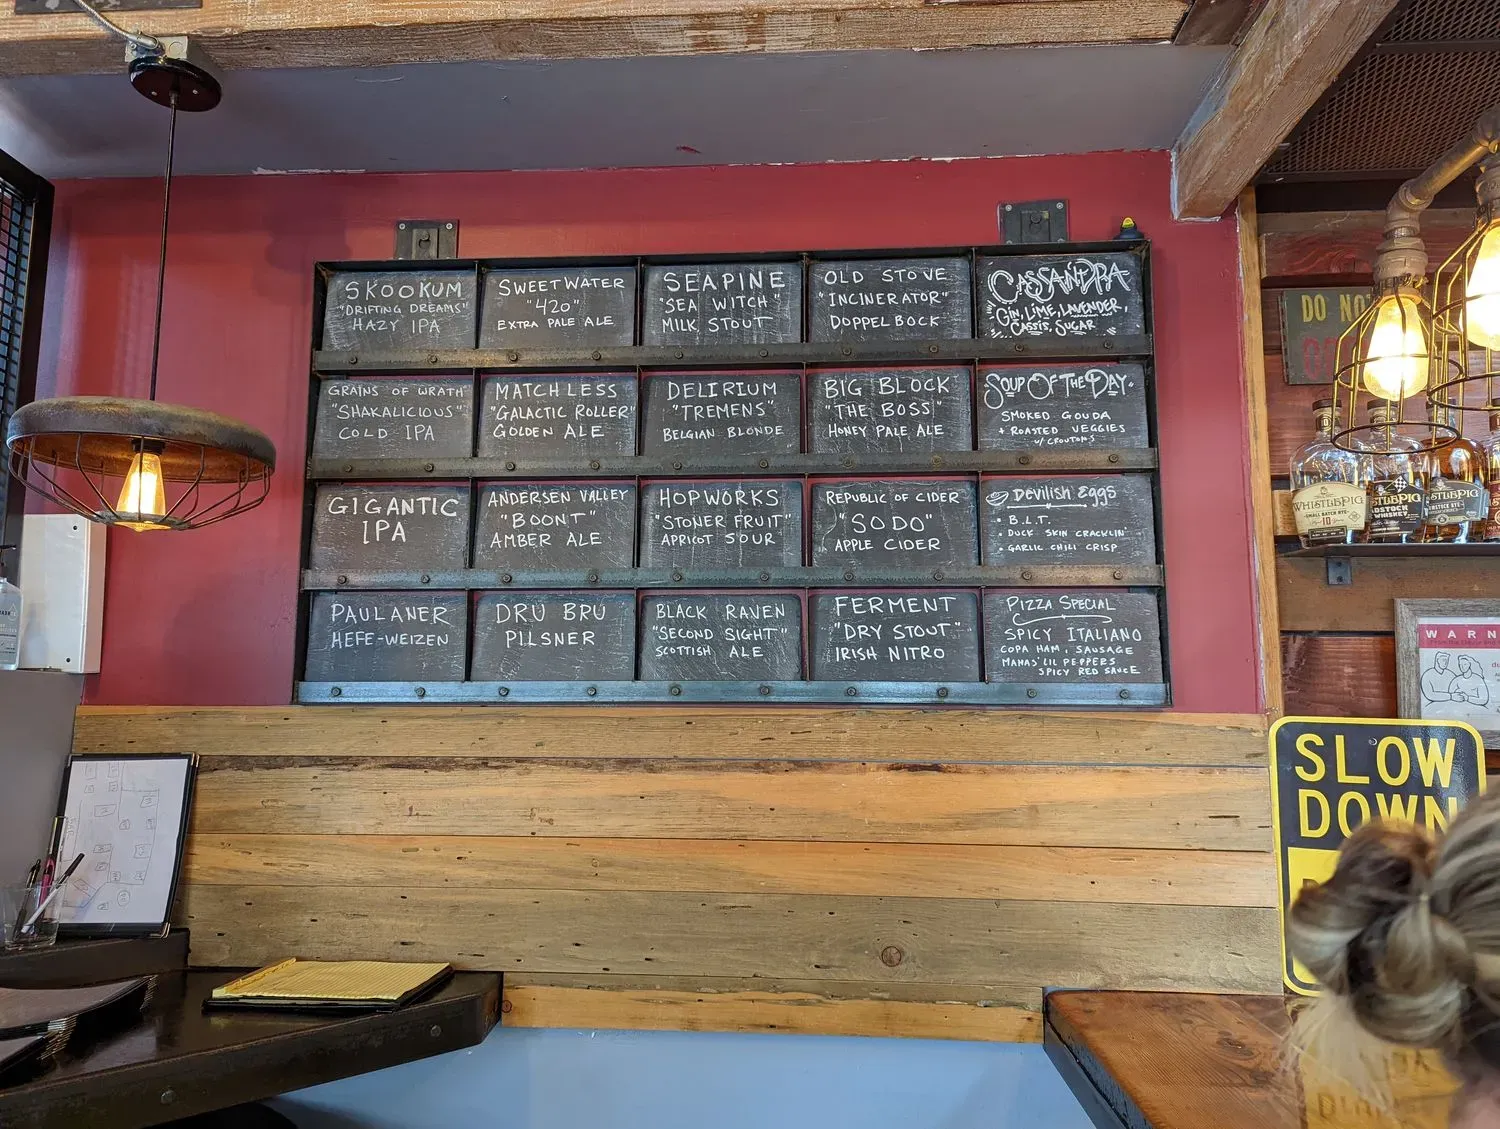 SKOOKUM
"DRIFTING DREAMS"
HAZY IPA
SWEETWATER
"420"
EXTRA PALE ALE
SEAPINE
"SEA WITCH"
MILK STOUT
OLD STOVE
"INCINERATOR"
DOPPELBOCK
CASSANDRA
GIN, LIME, LAVENDER,
CASSIS, SUGAR
GRAINS OF WRATH
"SHAKALICIOUS"
COLD IPA
MATCHLESS
"GALACTIC ROLLER"
GOLDEN ALE
DELIRIUM
"TREMENS"
BELGIAN BLONDE
BIG BLOCK
"THE BOSS"
HONEY PALE ALE
SOUP OF THE DAY
SMOKED GOUDA
+ ROASTED VEGGIES
W/ CROUTONS
GIGANTIC
IPA
ANDERSEN VALLEY
"BOONT"
AMBER ALE
HOPWORKS
"STONER FRUIT"
APRICOT SOUR
REPUBLIC OF CIDER
"SODO"
APPLE CIDER
DEVILISH EGGS
• B.L.T.
• DUCK SKIN CRACKLIN
• GARLIC CHILI CRISP
PAULANER
HEFE-WEIZEN
DRU BRU
PILSNER
BLACK RAVEN
"SECOND SIGHT"
SCOTTISH ALE
FERMENT
"DRY STOUT"
IRISH NITRO
PIZZA SPECIAL
SPICY ITALIANO
COPA HAM, SAUSAGE
MAMAS' LIL PEPPERS
SPICY RED SAUCE
DO NO
WHISTLEPIG
SMALL BATCH RYE
10
WHISKEY
WARN
SLOW
DOWN